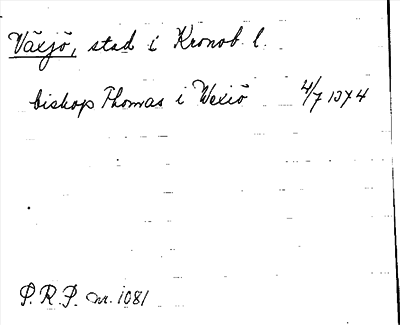 Växjö, stad i Kronob. l.
biskop Thomas i Wexiö 4/7 1374
P.R.P. nr. 1081